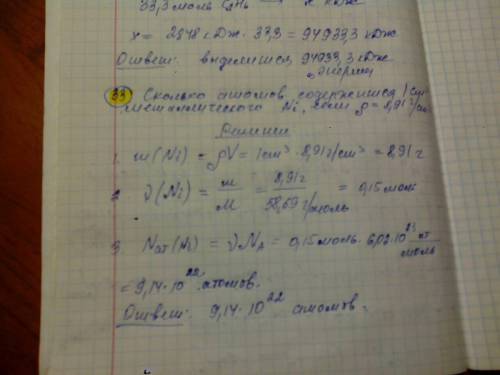 33,3 моль C2H6 → x кДж
x = 2848 кДж · 33,3 = 94933,3 кДж
Ответ: выделится 94933,3 кДж
энергии
33 Сколько атомов содержится 1 см³
металлического Ni, если ρ = 8,91 г/см
Решение
1. m(Ni) = ρV = 1 см³ · 8,91 г/см³ = 8,91 г
2. ν(Ni) = m/M = 8,91 г / 58,69 г/моль = 0,15 моль
3. Nат(Ni) = νNA = 0,15 моль · 6,02 · 10²³ ат/моль
= 9,14 · 10²² атомов.
Ответ: 9,14 · 10²² атомов.